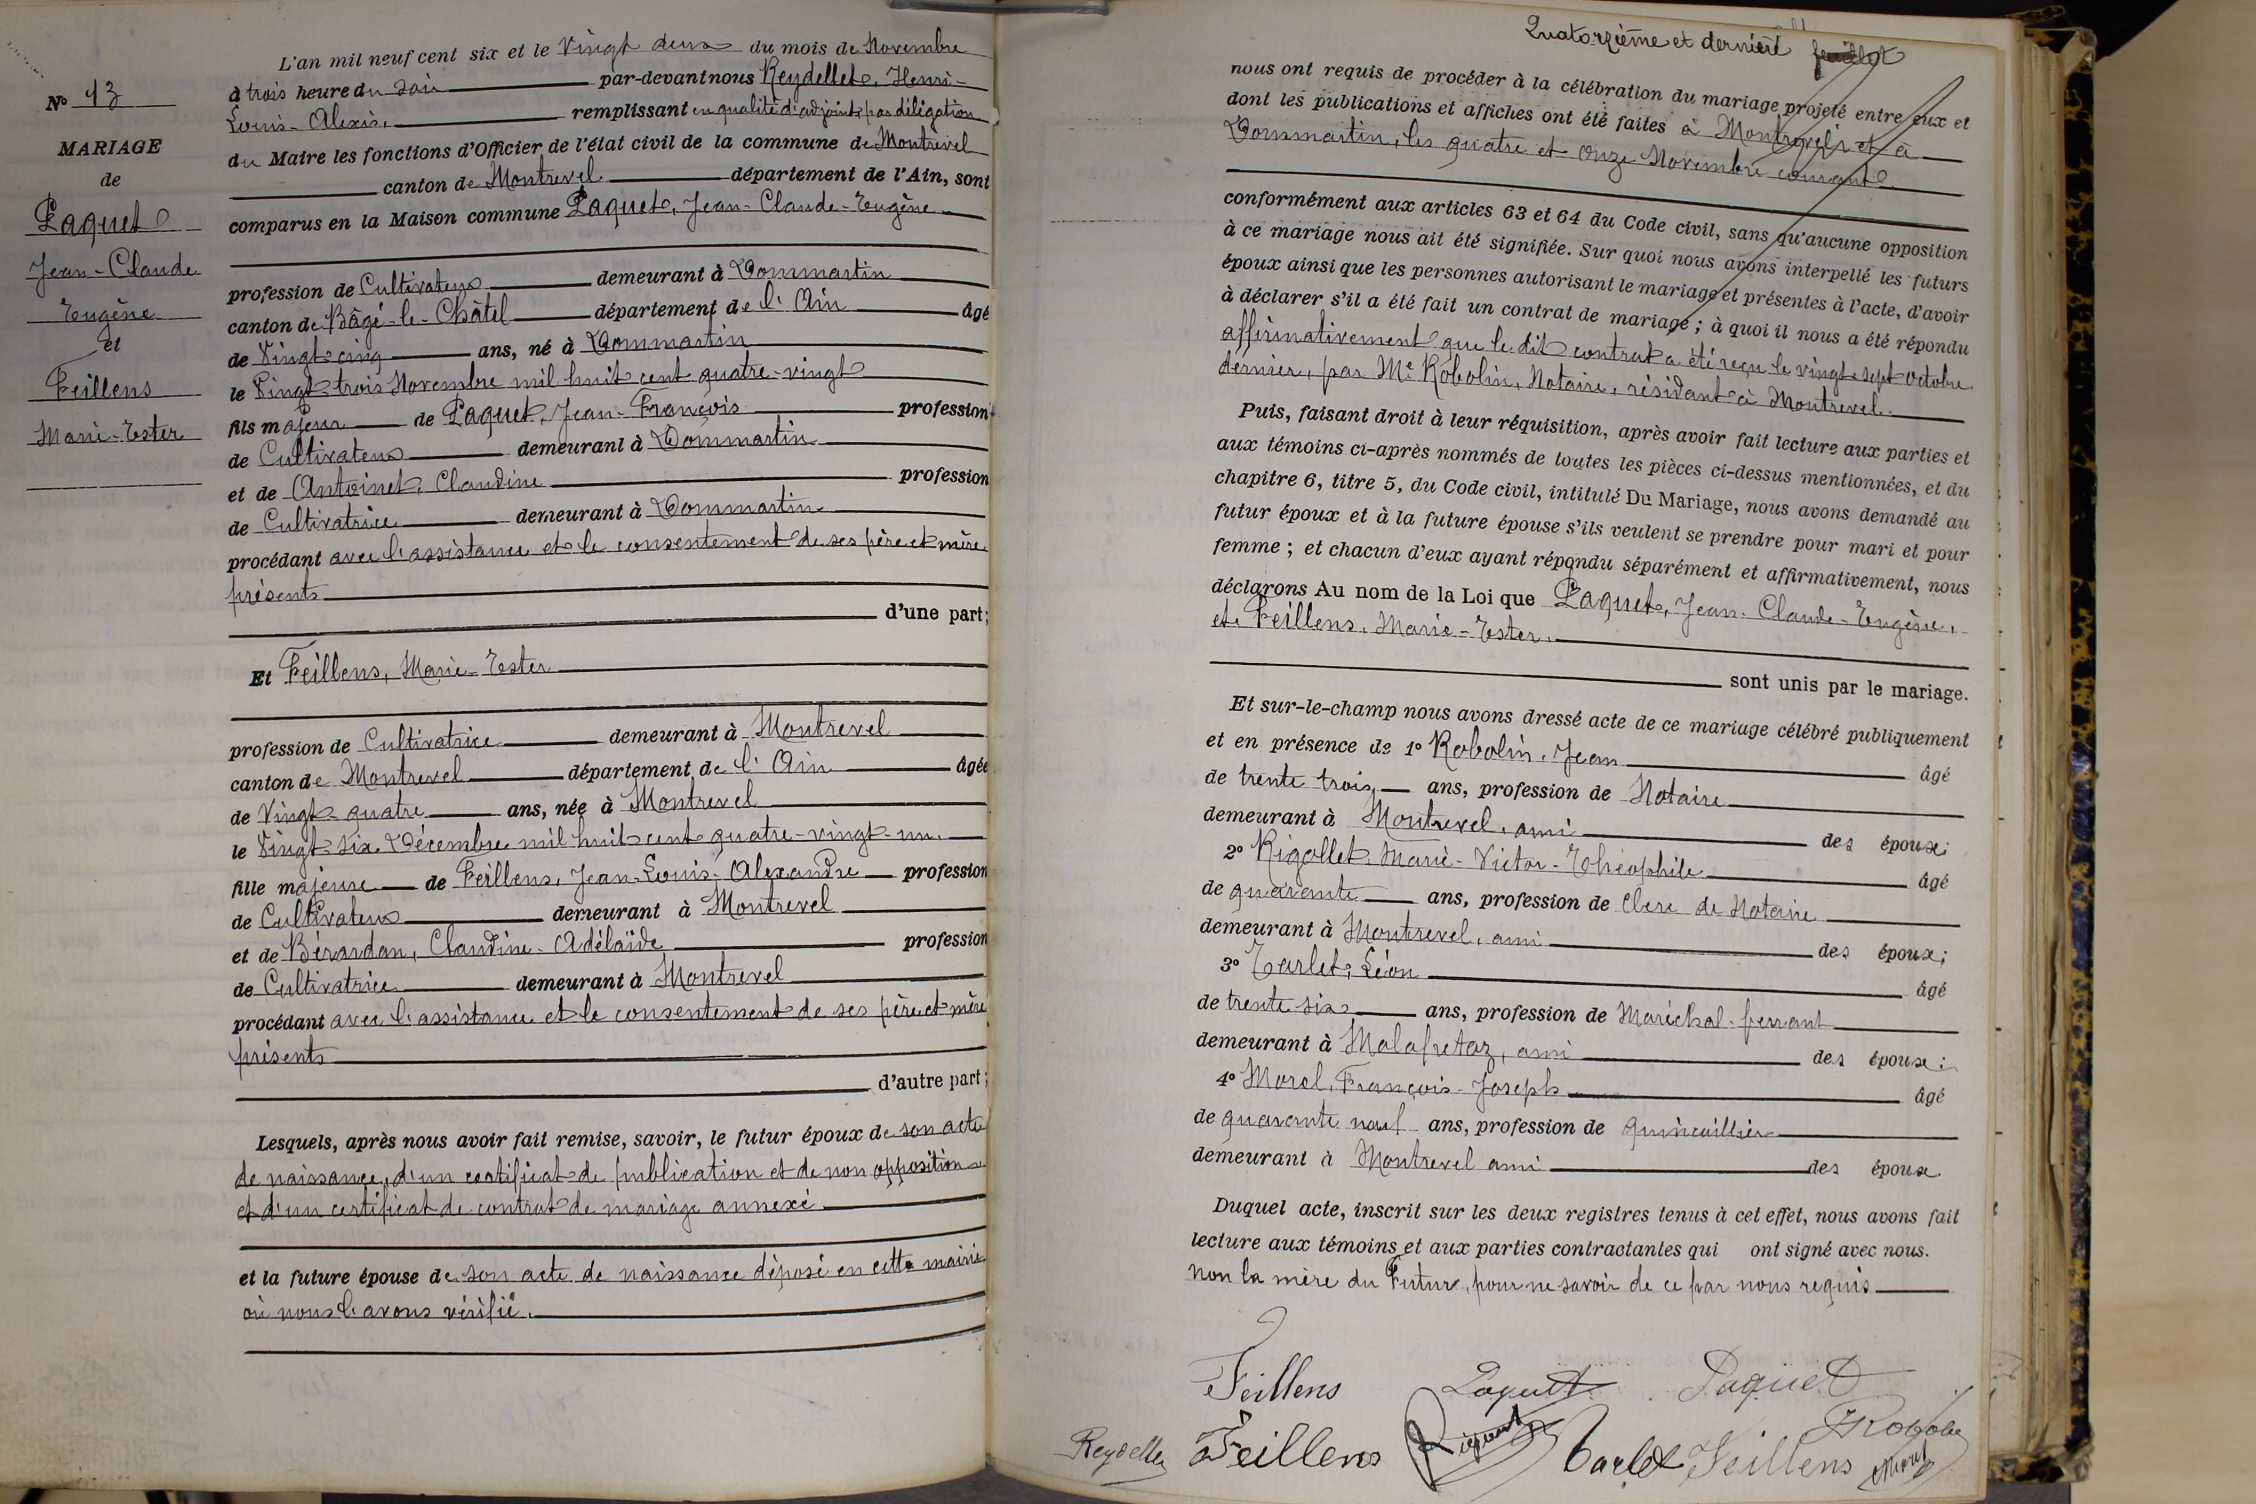 N° 13
MARIAGE
de
Paquet
Jean-Claude
Eugène
et
Feillens
Marie-Ester
L'an mil neuf cent six et le Vingt deux du mois de Novembre
à trois heure du soir par-devant nous Reydellet, Henri-
Louis-Alexis, remplissant en qualité d'adjoint, par délégation
du Maire les fonctions d'Officier de l'état civil de la commune de Montrevel
canton de Montrevel département de l'Ain, sont
comparus en la Maison commune Paquet, Jean-Claude-Eugène
profession de Cultivateur demeurant à Dommartin
canton de Bâgé-le-Châtel département de l'Ain âgé
de Vingt-cinq ans, né à Dommartin
le Vingt-trois Novembre mil huit cent quatre-vingt
fils majeur de Paquet, Jean-François profession
de Cultivateur demeurant à Dommartin
et de Antoinet, Claudine profession
de Cultivatrice demeurant à Dommartin
procédant avec l'assistance et le consentement de ses père et mère
présents
d'une part;
Et Feillens, Marie-Ester
profession de Cultivatrice demeurant à Montrevel
canton de Montrevel département de l'Ain âgée
de Vingt-quatre ans, née à Montrevel
le Vingt-six Décembre mil huit cent quatre-vingt-un.
fille majeure de Feillens, Jean-Louis-Alexandre profession
de Cultivateur demeurant à Montrevel
et de Bérardan, Claudine-Adélaïde profession
de Cultivatrice demeurant à Montrevel
procédant avec l'assistance et le consentement de ses père et mère
présents
d'autre part;
Lesquels, après nous avoir fait remise, savoir, le futur époux de son acte
de naissance, d'un certificat de publication et de non opposition
et d'un certificat de contrat de mariage annexé
et la future épouse de son acte de naissance déposé en cette mairie
où nous l'avons vérifié.
Quatorzième et dernier feuillet
nous ont requis de procéder à la célébration du mariage projeté entre eux et
dont les publications et affiches ont été faites à Montrevel et à
Dommartin, les quatre et onze Novembre courant
conformément aux articles 63 et 64 du Code civil, sans qu'aucune opposition
à ce mariage nous ait été signifiée. Sur quoi nous avons interpellé les futurs
époux ainsi que les personnes autorisant le mariage et présentes à l'acte, d'avoir
à déclarer s'il a été fait un contrat de mariage; à quoi il nous a été répondu
affirmativement que le dit contrat a été reçu le vingt-sept octobre
dernier, par Me Robolin, Notaire, résidant à Montrevel.
Puis, faisant droit à leur réquisition, après avoir fait lecture aux parties et
aux témoins ci-après nommés de toutes les pièces ci-dessus mentionnées, et du
chapitre 6, titre 5, du Code civil, intitulé Du Mariage, nous avons demandé au
futur époux et à la future épouse s'ils veulent se prendre pour mari et pour
femme; et chacun d'eux ayant répondu séparément et affirmativement, nous
déclarons Au nom de la Loi que Paquet, Jean-Claude-Eugène,
et Feillens, Marie-Ester.
sont unis par le mariage.
Et sur-le-champ nous avons dressé acte de ce mariage célébré publiquement
et en présence de 1° Robolin, Jean âgé
de trente trois ans, profession de Notaire
demeurant à Montrevel, ami des époux;
2° Rigollet, Marie-Victor-Théophile âgé
de quarante ans, profession de Clerc de Notaire
demeurant à Montrevel, ami des époux;
3° Tarlet, Léon âgé
de trente six ans, profession de Maréchal-ferrant
demeurant à Malafretaz, ami des époux;
4° Morel, François-Joseph âgé
de quarante neuf ans, profession de quincaillier
demeurant à Montrevel ami des époux
Duquel acte, inscrit sur les deux registres tenus à cet effet, nous avons fait
lecture aux témoins et aux parties contractantes qui ont signé avec nous.
non la mère du Futur, pour ne savoir de ce par nous requis
Feillens Paquet Paquet
Reydellet Feillens Tarlet Feillens Robolin Morel